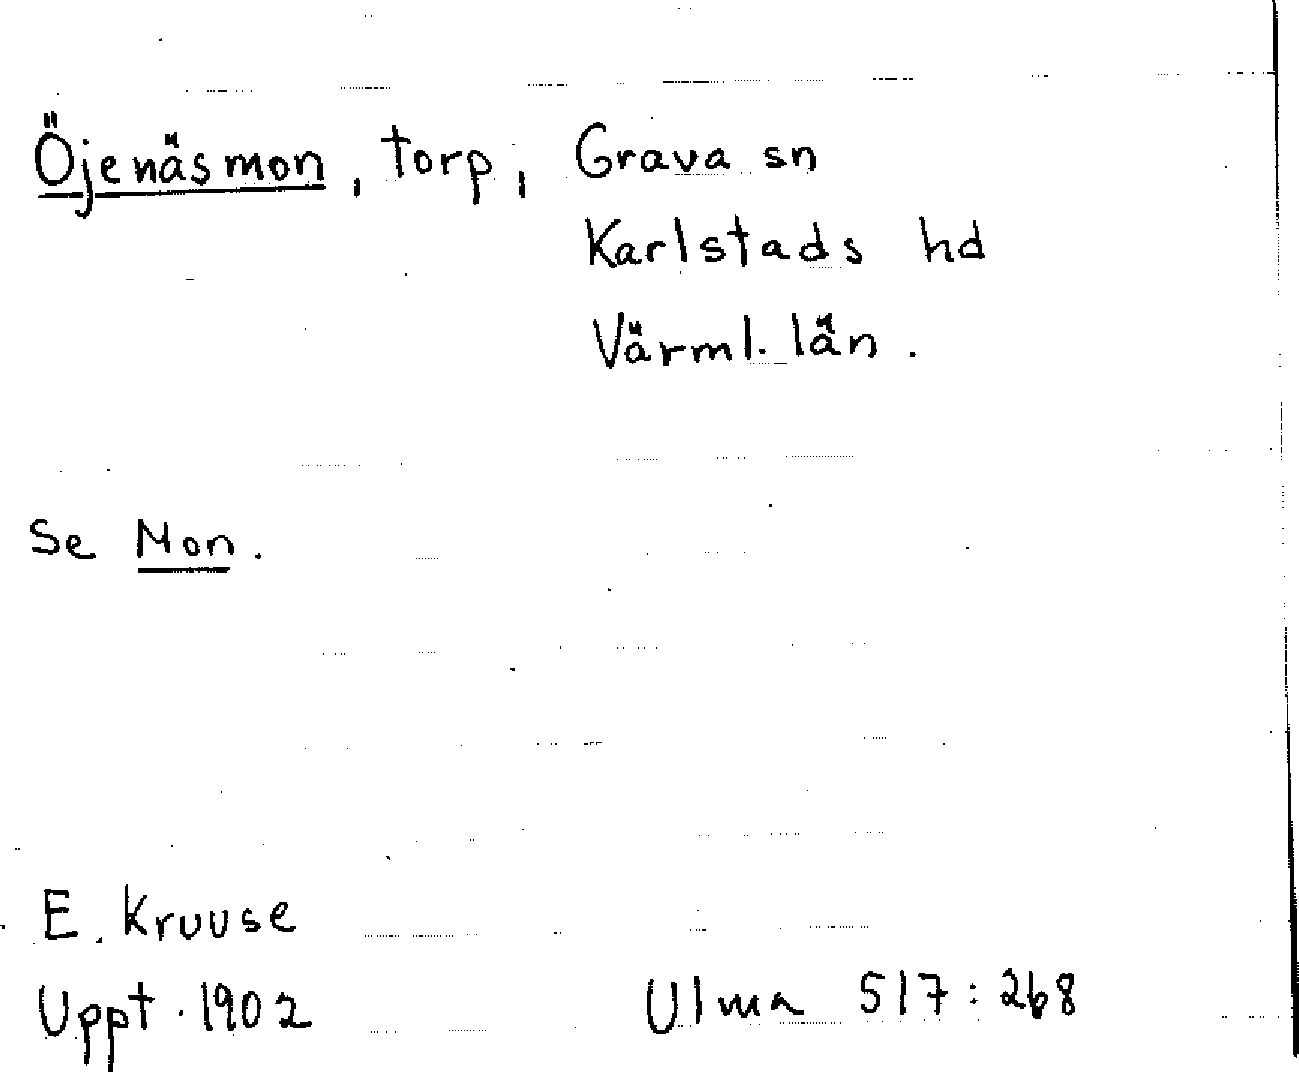 Öjenäsmon, torp, Grava sn
Karlstads hd
Värml. län.
Se Mon.
E. Kruuse
Uppt. 1902 Ulma 517:268